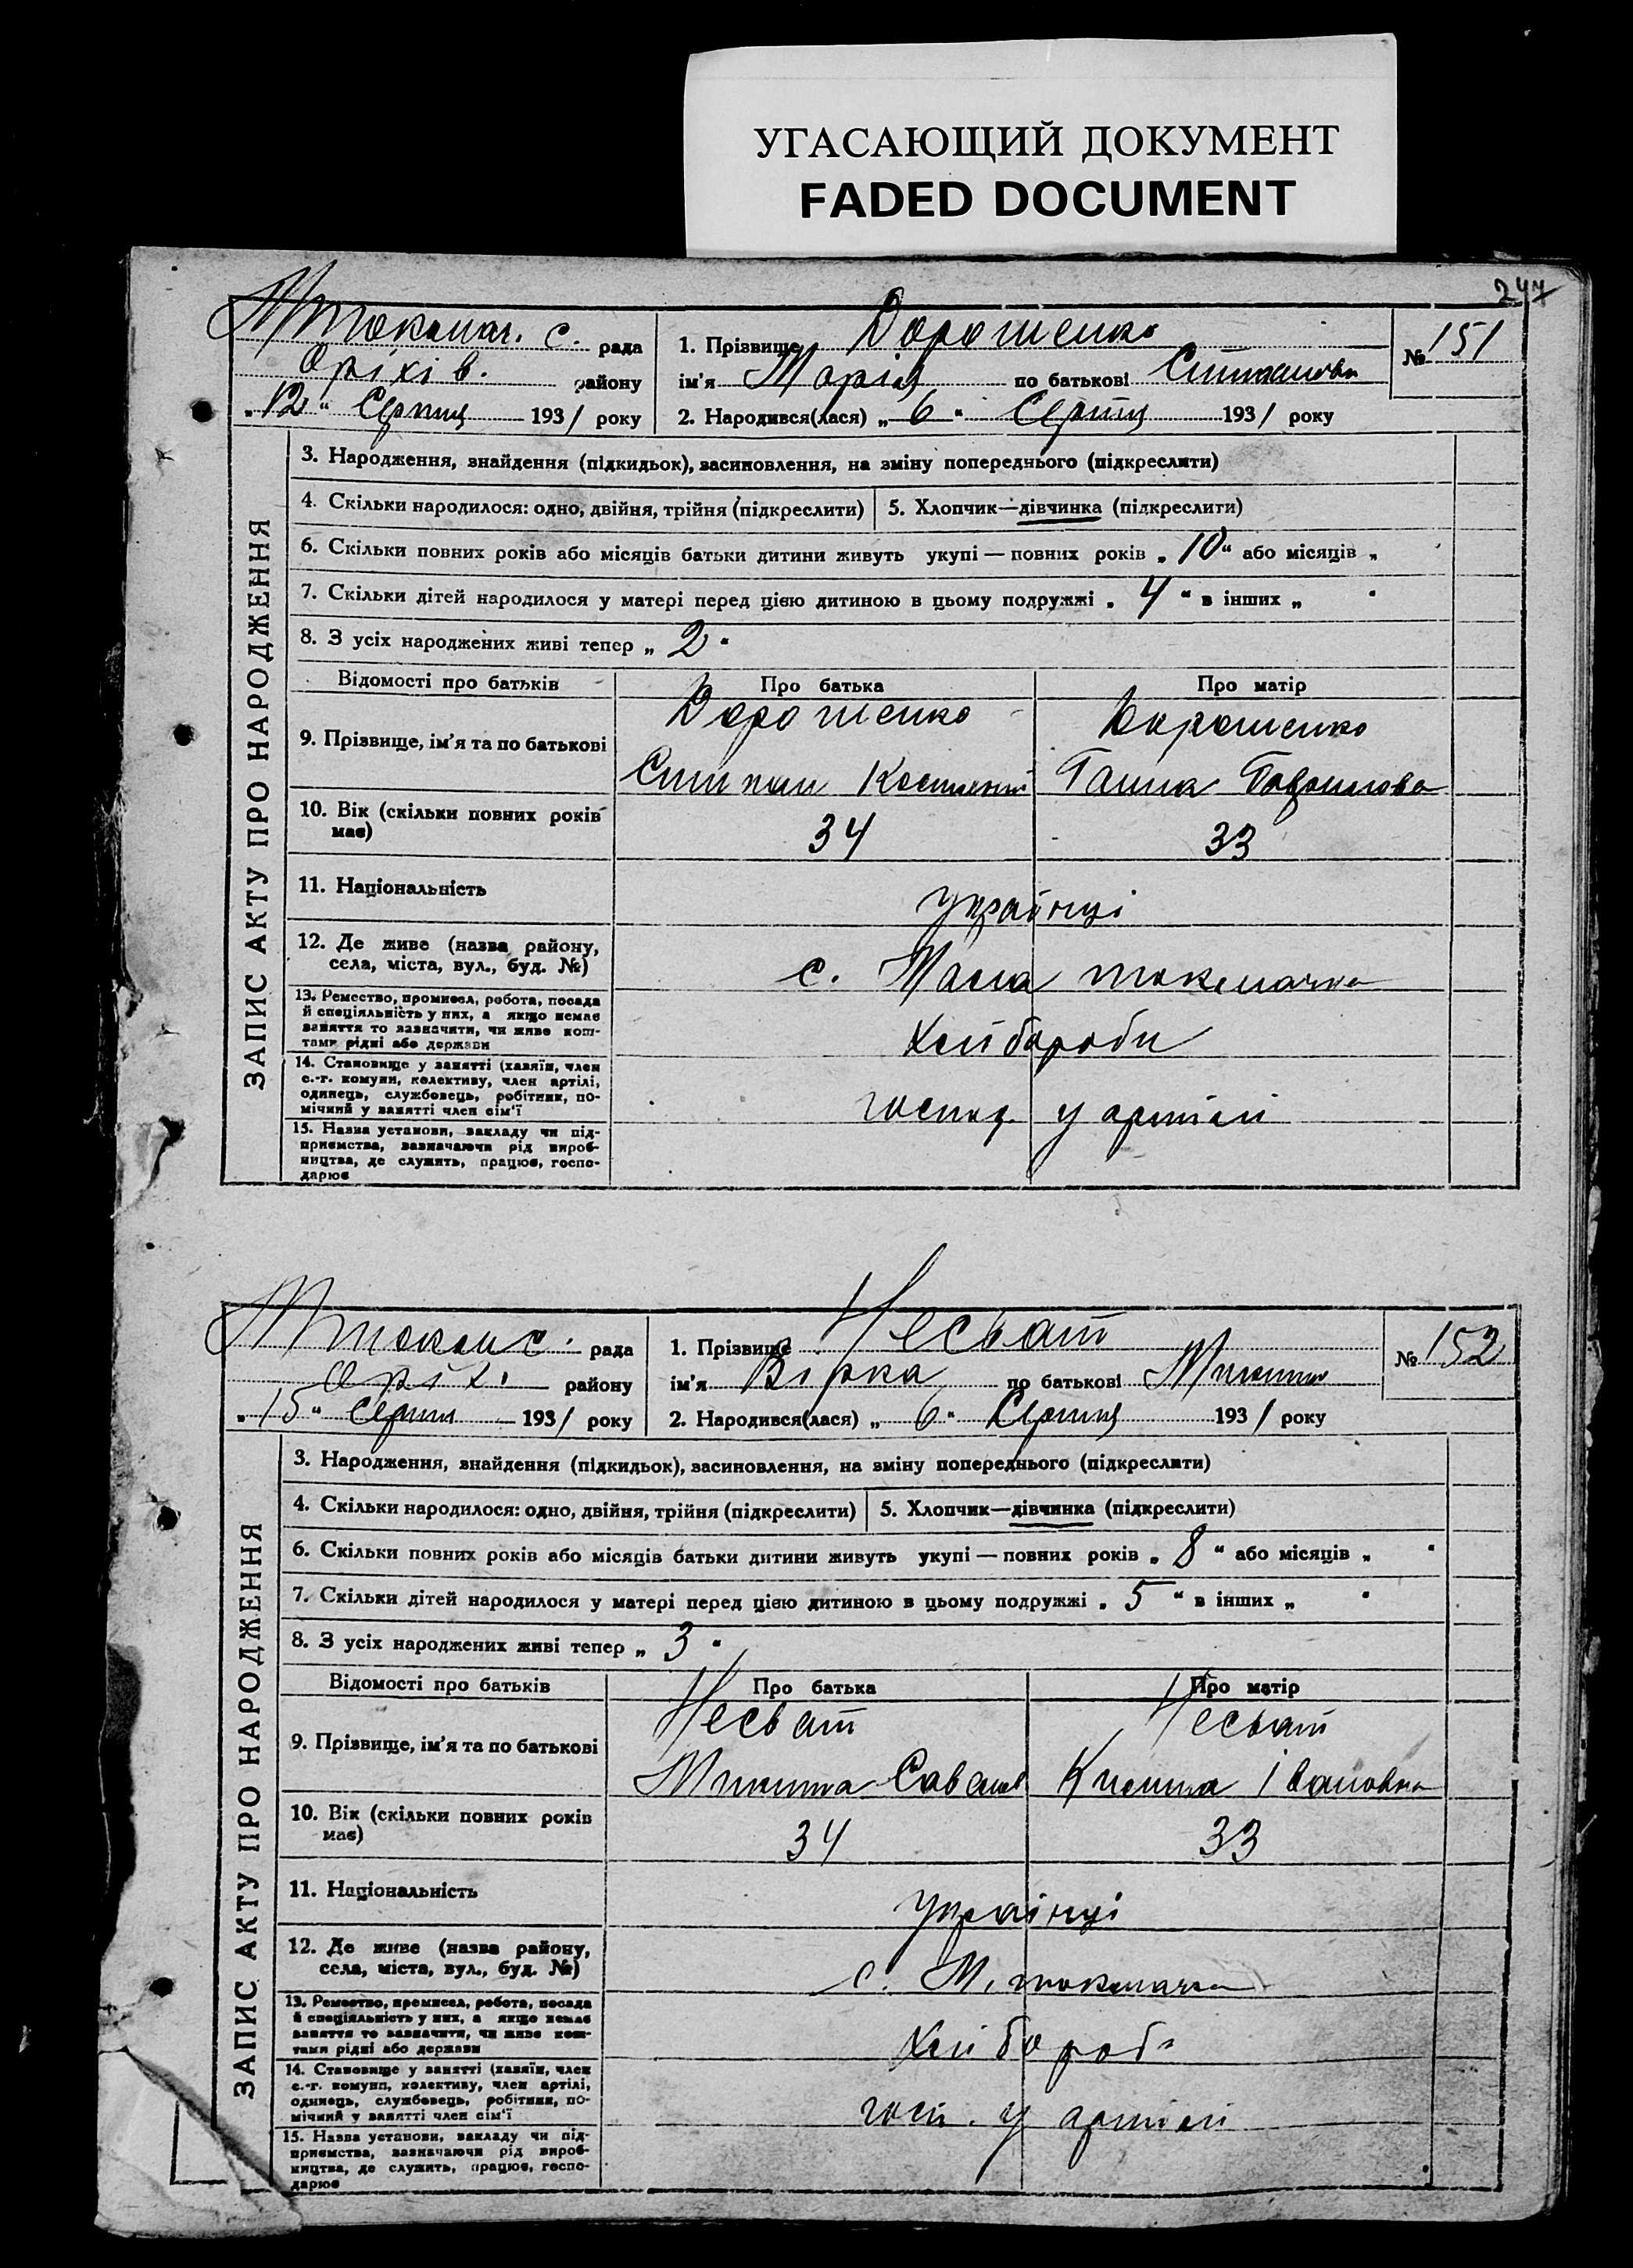 УГАСАЮЩИЙ ДОКУМЕНТ
FADED DOCUMENT
247
Мтокмач. с. рада
Оріхів. району
„12“ Серпня 1931 року
1. Прізвище Дорошенко
ім'я Марія по батькові
2. Народився(лася) „6“ Серпня 1931 року
№ 151
ЗАПИС АКТУ ПРО НАРОДЖЕННЯ
3. Народження, знайдення (підкидьок), засиновлення, на зміну попереднього (підкреслити)
4. Скільки народилося: одно, двійня, трійня (підкреслити)
5. Хлопчик—дівчинка (підкреслити)
6. Скільки повних років або місяців батьки дитини живуть укупі — повних років „10“ або місяців „
7. Скільки дітей народилося у матері перед цією дитиною в цьому подружжі „4“ в інших „ “
8. З усіх народжених живі тепер „2“
Відомості про батьків
Про батька
Про матір
9. Прізвище, ім'я та по батькові
Дорошенко
Дорошенко
Ганна
10. Вік (скільки повних років
має)
34
33
11. Національність
українці
12. Де живе (назва району,
села, міста, вул., буд. №)
с. Мала токмачка
13. Ремество, промисел, робота, посада
й спеціяльність у них, а якщо немає
заняття то зазначити, чи живе кош-
тами рідні або держави
Хлібороби
14. Становище у занятті (хазяїн, член
с.-г. комуни, колективу, член артілі,
одинець, службовець, робітник, по-
мічний у занятті член сім'ї
господ. у артілі
15. Назва установи, закладу чи під-
приємства, зазначаючи рід вироб-
ництва, де служить, працює, госпо-
дарює
Мтокм с. рада
Оріх. району
„15“ Серпня 1931 року
1. Прізвище Несват
ім'я Вірка по батькові
2. Народився(лася) „6“ Серпня 1931 року
№ 152
ЗАПИС АКТУ ПРО НАРОДЖЕННЯ
3. Народження, знайдення (підкидьок), засиновлення, на зміну попереднього (підкреслити)
4. Скільки народилося: одно, двійня, трійня (підкреслити)
5. Хлопчик—дівчинка (підкреслити)
6. Скільки повних років або місяців батьки дитини живуть укупі — повних років „8“ або місяців „ “
7. Скільки дітей народилося у матері перед цією дитиною в цьому подружжі „5“ в інших „ “
8. З усіх народжених живі тепер „3“
Відомості про батьків
Про батька
Про матір
9. Прізвище, ім'я та по батькові
Несват
Несват
Микита
Івановна
10. Вік (скільки повних років
має)
34
33
11. Національність
українці
12. Де живе (назва району,
села, міста, вул., буд. №)
с. М. токмачка
13. Ремество, промисел, робота, посада
й спеціяльність у них, а якщо немає
заняття то зазначити, чи живе кош-
тами рідні або держави
Хлібороб
14. Становище у занятті (хазяїн, член
с.-г. комуни, колективу, член артілі,
одинець, службовець, робітник, по-
мічний у занятті член сім'ї
госп. у артілі
15. Назва установи, закладу чи під-
приємства, зазначаючи рід вироб-
ництва, де служить, працює, госпо-
дарює